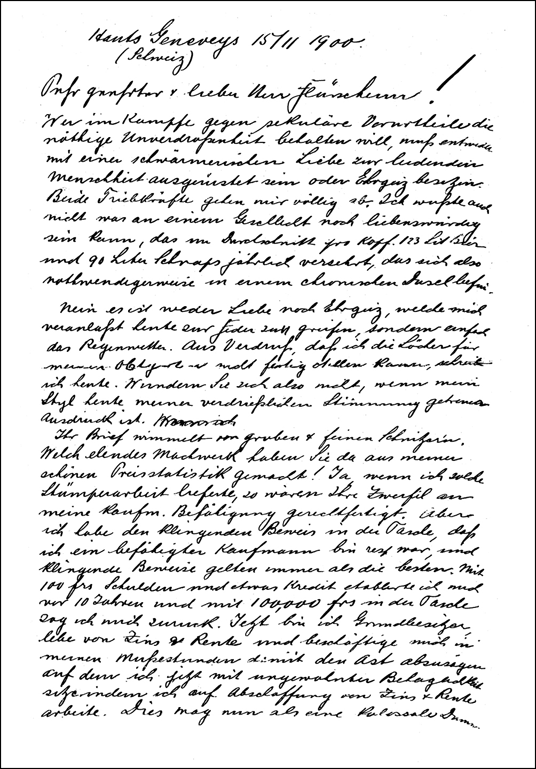 Hauts Geneveys 15/11 1900.
(Schweiz)
Sehr geehrter & lieber Herr Flürscheim!
Wer im Kampfe gegen sekuläre Vorurtheile die
nöthige Unverdrossenheit behalten will, muss entweder
mit einer schwärmerischen Liebe zur leidenden
Menschheit ausgerüstet sein oder Ehrgeiz besitzen.
Beide Triebkräfte gehen mir völlig ab. Ich wüsste auch
nicht was an einem Geschlecht noch liebenswürdig
sein kann, das im Durchschnitt pro Kopf 123 Lit Bier
und 90 Liter Schnaps jährlich verzehrt, das sich also
nothwendigerweise in einem chronischen Dusel befin-
Nein es ist weder Liebe noch Ehrgeiz, welche mich
veranlasst heute zur Feder zu greifen, sondern einfach
das Regenwetter. Aus Verdruss, dass ich die Löcher für
meinen nicht fertig stellen kann, schreibe
ich heute. Wundern Sie sich also nicht, wenn mein
Styl heute meiner verdriesslichen Stimmung getreuer
Ausdruck ist.
Ihr Brief wimmelt von groben & feinen Schnitzern.
Welch elendes Machwerk haben Sie da aus meiner
schönen Preisstatistik gemacht! Ja, wenn ich solche
Stümperarbeit lieferte, so wären Ihre Zweifel an
meine kaufm. Befähigung gerechtfertigt. Aber
ich habe den klingenden Beweis in der Tasche, dass
ich ein befähigter Kaufmann bin resp war, und
klingende Beweise gelten immer als die besten. Mit
100 frs Schulden und etwas Kredit etablirte ich mich
vor 10 Jahren und mit 100000 frs in der Tasche
zog ich mich zurück. Jetzt bin ich Grundbesitzer
lebe von Zins & Rente und beschäftige mich in
meinen Mussestunden damit den Ast abzusägen
auf dem ich jetzt mit ungewohnter Behaglichkeit
sitze indem ich auf Abschaffung von Zins & Rente
arbeite. Dies mag nun als eine kolossale Dumm-